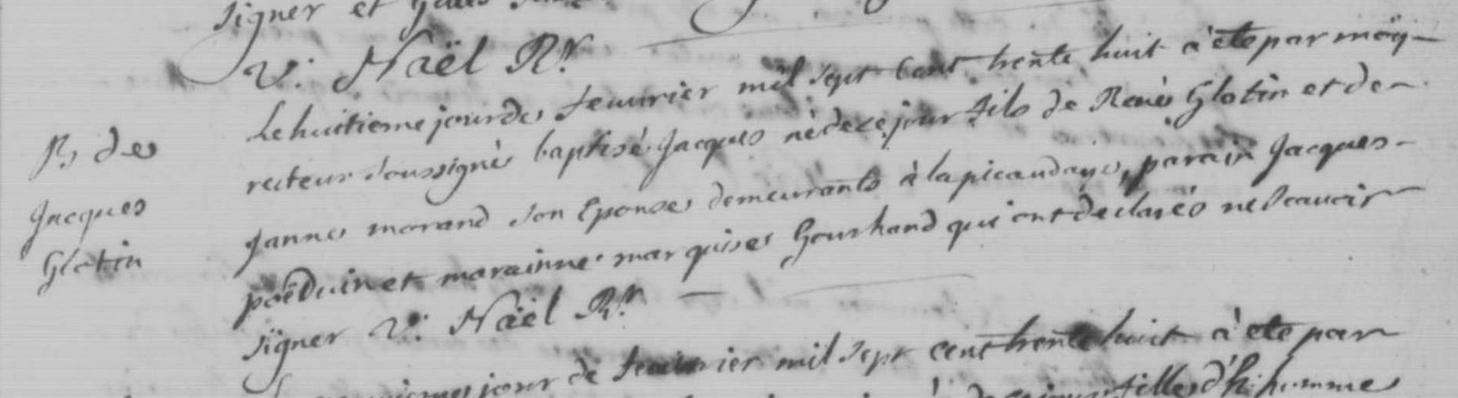 signer et
V: Noël Rr
Le huitieme jour de feuurier mil sept cent trente huit a ete par moÿ
B. de recteur soussigné baptisé Jacques né de ce jour fils de René Glotin et de
Jacques Janne morand son Epouse demeurants à la picaudaye, parain Jacques
Glotin poëduin et marainne marquise Gourhand qui ont declarés ne scauoir
signer V: Noël Rr
jour de feuurier mil sept cent trente huit à ete par
fille d'h: homme